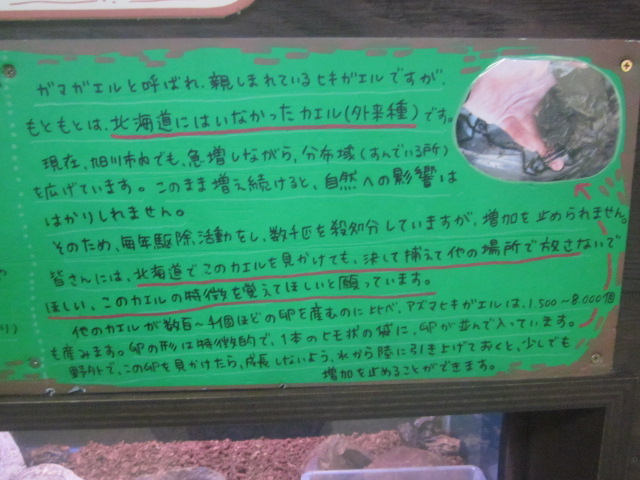 ガマガエルと呼ばれ、親しまれているヒキガエルですが、
もともとは、北海道にはいなかったカエル(外来種)です。
現在、旭川市内でも、急増しながら、分布域(すんでいる所)
を広げています。このまま増え続けると、自然への影響は
はかりしれません。
そのため、毎年駆除活動をし、数千匹を殺処分していますが、増加を止められません。
皆さんには、北海道でこのカエルを見かけても、決して捕えて他の場所で放さないで
ほしい、このカエルの特徴を覚えてほしいと願っています。
他のカエルが数百〜千個ほどの卵を産むのに比べ、アズマヒキガエルは、1,500〜8,000個
も産みます。卵の形は特徴的で、1本のヒモ状の袋に、卵が並んで入っています。
野外で、この卵を見かけたら、成長しないよう、水から陸に引き上げておくと、少しでも
増加を止めることができます。